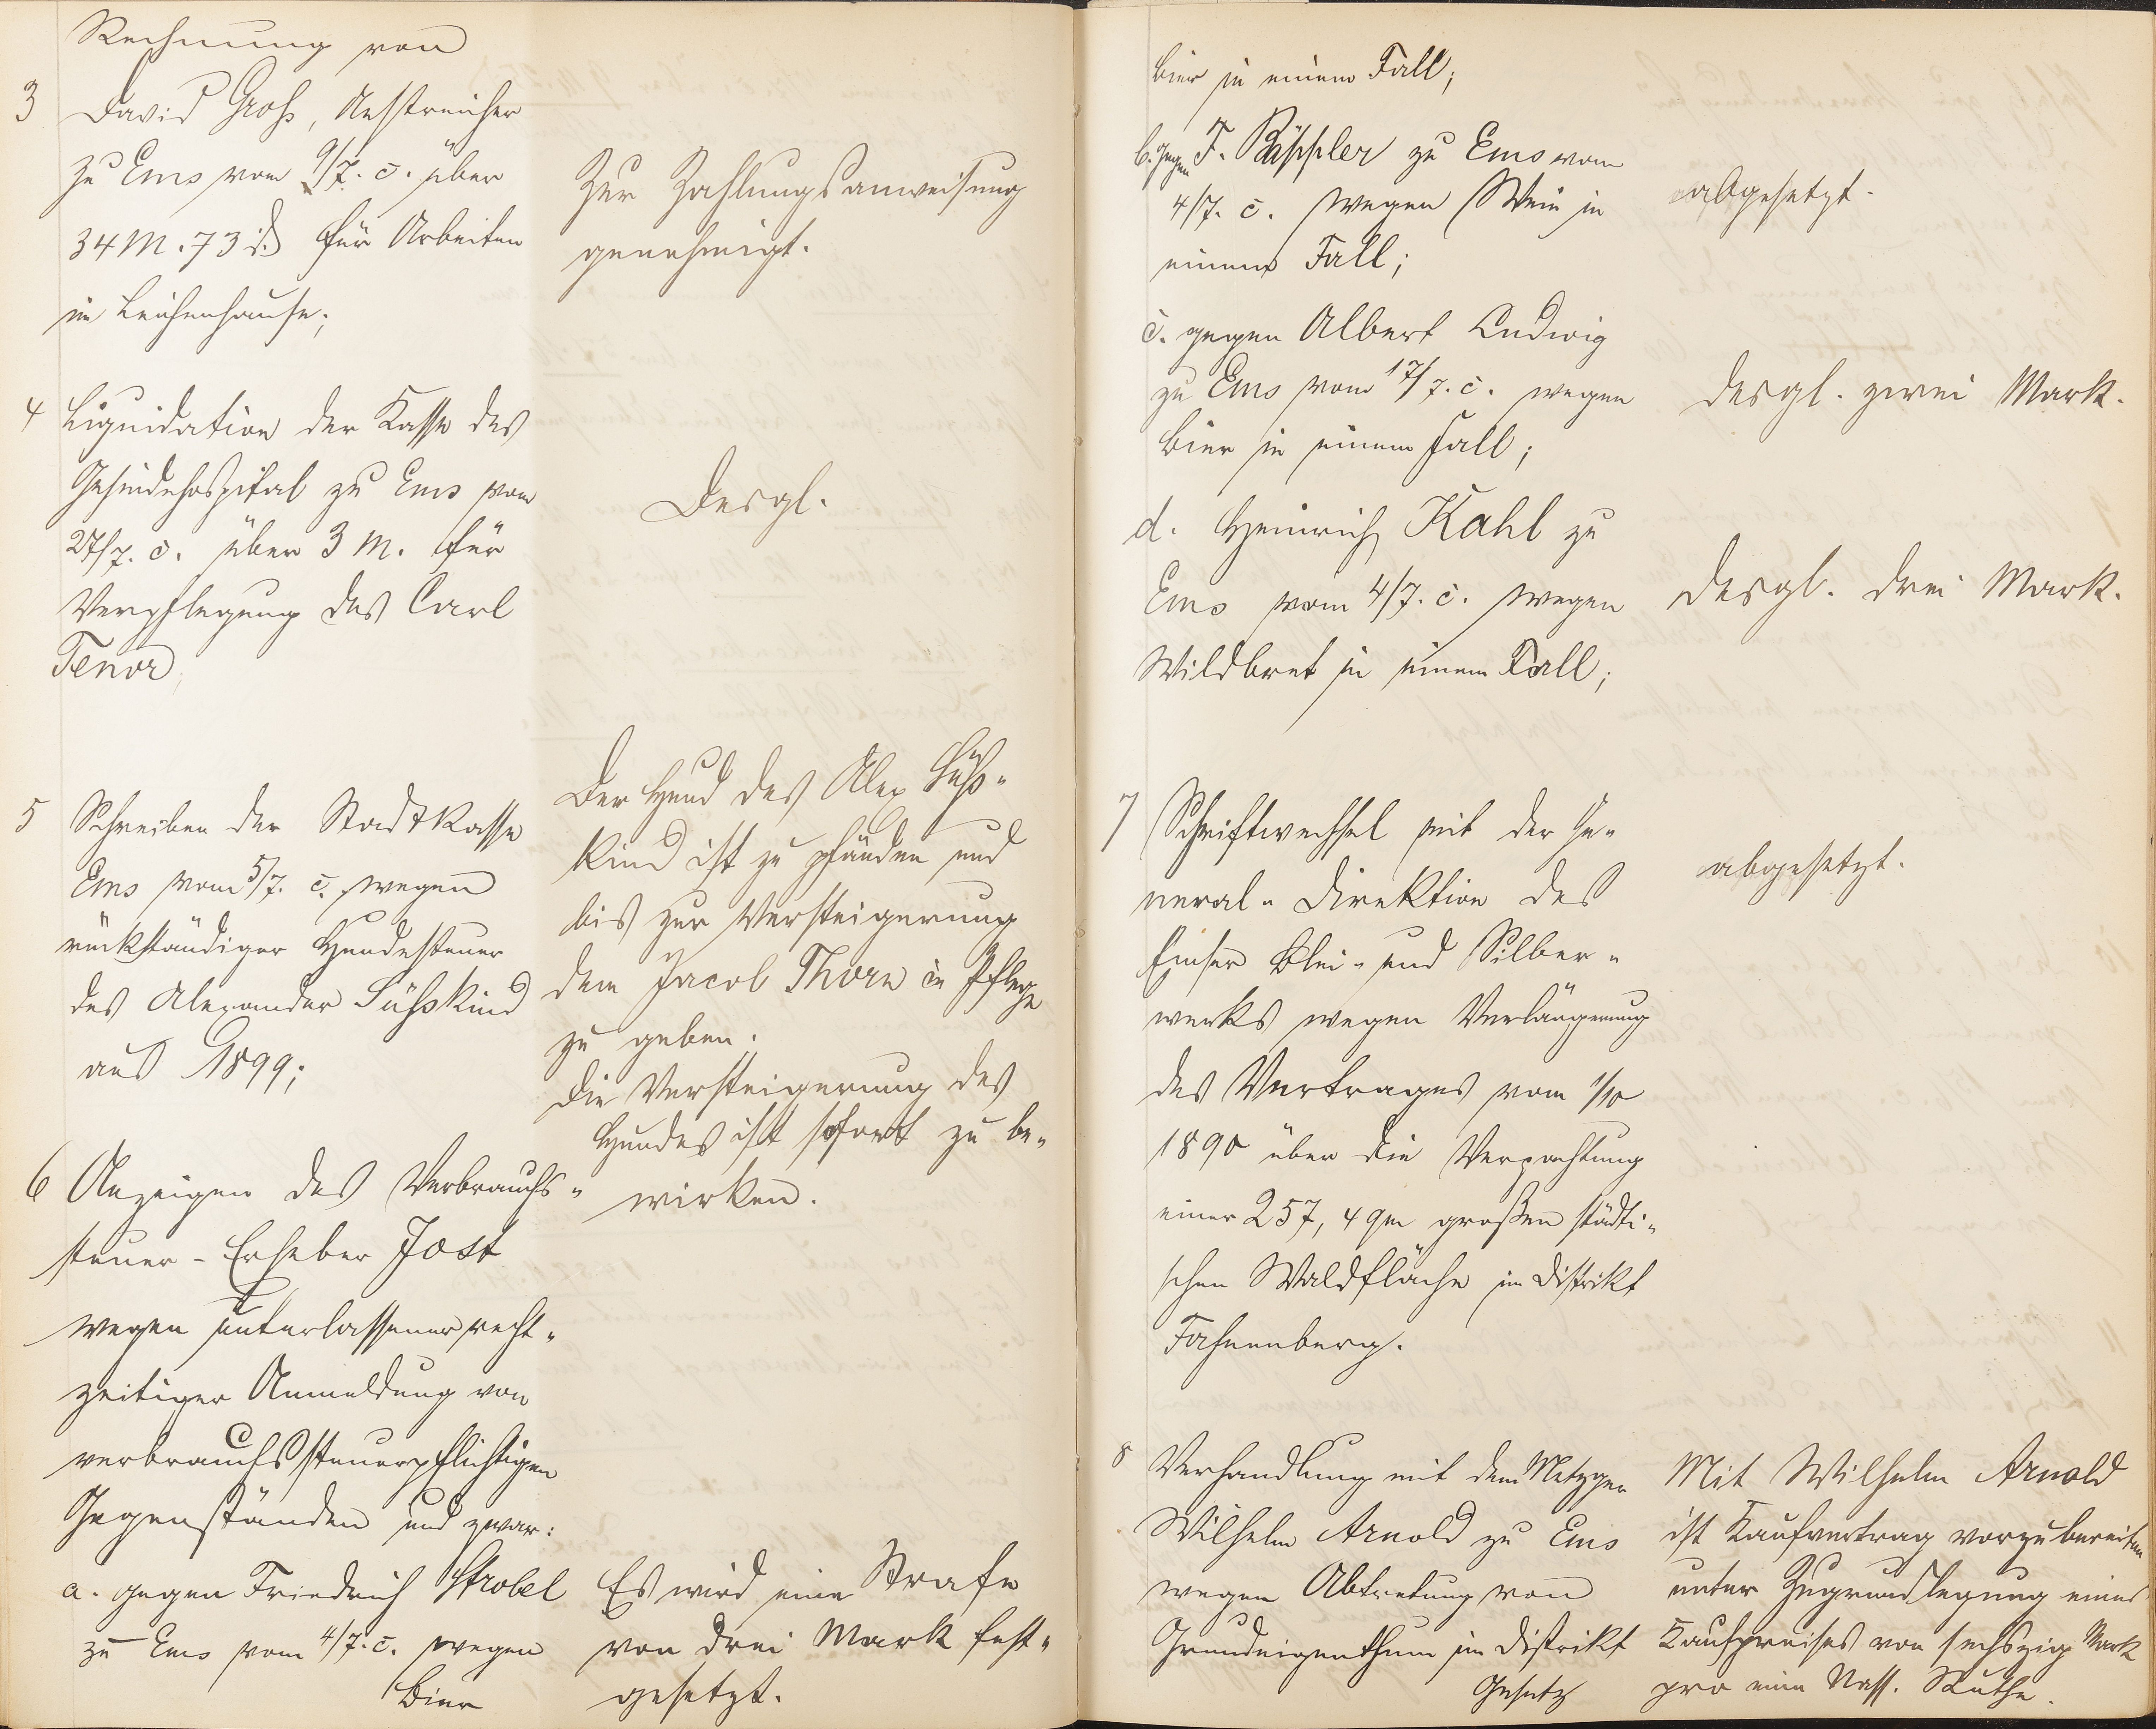 Rechnung von
3 David Groß, Anstreicher
zu Ems vom 9/7. c. über
34 M. 73 d für Arbeiten
im Leichenhause;
Zur Zahlungsanweisung
genehmigt.
4 Liquidation der Kasse des
Gesindehospital zu Ems vom
27/7. c. über 3 M. für
Verpflegung des Carl
Tenor
Desgl.
5 Schreiben der Stadtkasse
Ems vom 5/7. c. wegen
rückständiger Hundesteuer
des Alexander Süßkind
aus 1899;
Der Hund des Alex Süß-
kind ist zu pfänden und
bis zur Versteigerung
dem Jacob Thorn in Pflege
zu geben.
Die Versteigerung des
Hundes ist sofort zu be-
wirken.
6 Anzeigen des Verbrauchs-
steuer-Erheber Jost
wegen unterlassener recht-
zeitiger Anmeldung von
verbrauchssteuerpflichtigen
Gegenständen und zwar:
a. gegen Friedrich Strobel
zu Ems vom 4/7. c. wegen
Bier
Es wird eine Strafe
von drei Mark fest-
gesetzt.
Bier in einem Fall;
b. gegen F. Päppler zu Ems vom
4/7. c. wegen Wein in
einem Fall;
abgesetzt.
c. gegen Albert Ludwig
zu Ems vom 17/7. c. wegen
Bier in einem Fall;
desgl. zwei Mark.
d. Heinrich Kahl zu
Ems vom 4/7. c. wegen
Wildbret in einem Fall;
desgl. drei Mark.
7 Schriftwechsel mit der Ge-
neral-Direktion des
Emser Blei- und Silber-
werks wegen Verlängerung
des Vertrages vom 1/10
1890 über die Verpachtung
einer 257,4 qm großen städti-
schen Waldfläche im Distrikt
Fahnenberg.
abgesetzt.
8 Verhandlung mit dem Metzger
Wilhelm Arnold zu Ems
wegen Abtretung von
Grundeigenthum im Distrikt
Gesetz
Mit Wilhelm Arnold
ist Kaufvertrag vorzubereiten
unter Zugrundlegung eines
Kaufpreises von sechszig Mark
pro eine Nass. Ruthe.